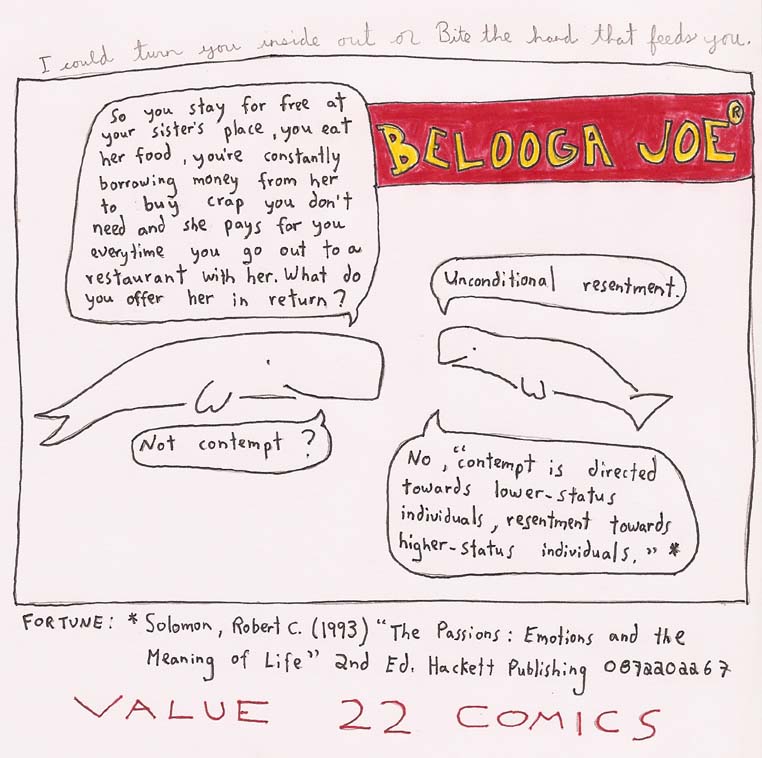 I could turn you inside out or Bite the hand that feeds you.
So you stay for free at
your sister's place, you eat
her food, you're constantly
borrowing money from her
to buy crap you don't
need and she pays for you
everytime you go out to a
restaurant with her. What do
you offer her in return?
BELOOGA JOE®
Unconditional resentment.
Not contempt?
No, "contempt is directed
towards lower-status
individuals, resentment towards
higher-status individuals." *
FORTUNE: * Solomon, Robert C. (1993) "The Passions: Emotions and the
Meaning of Life" 2nd Ed. Hackett Publishing 0872202267
VALUE 22 COMICS